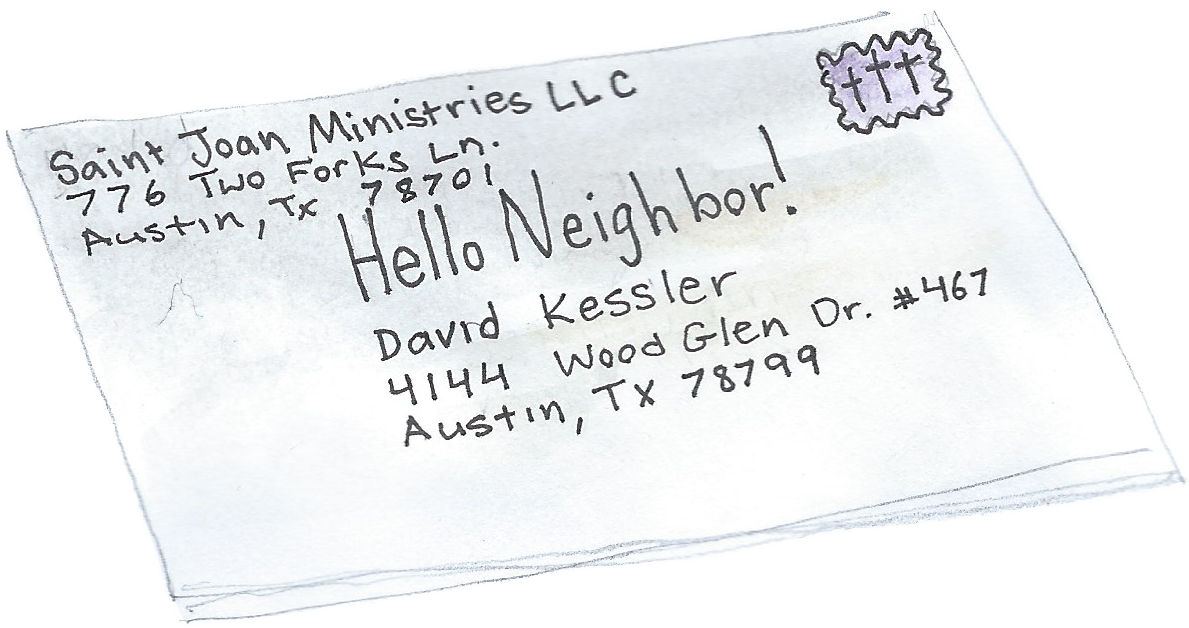 Saint Joan Ministries LLC
776 Two Forks Ln.
Austin, Tx 78701
Hello Neighbor!
David Kessler
4144 Wood Glen Dr. #467
Austin, TX 78799